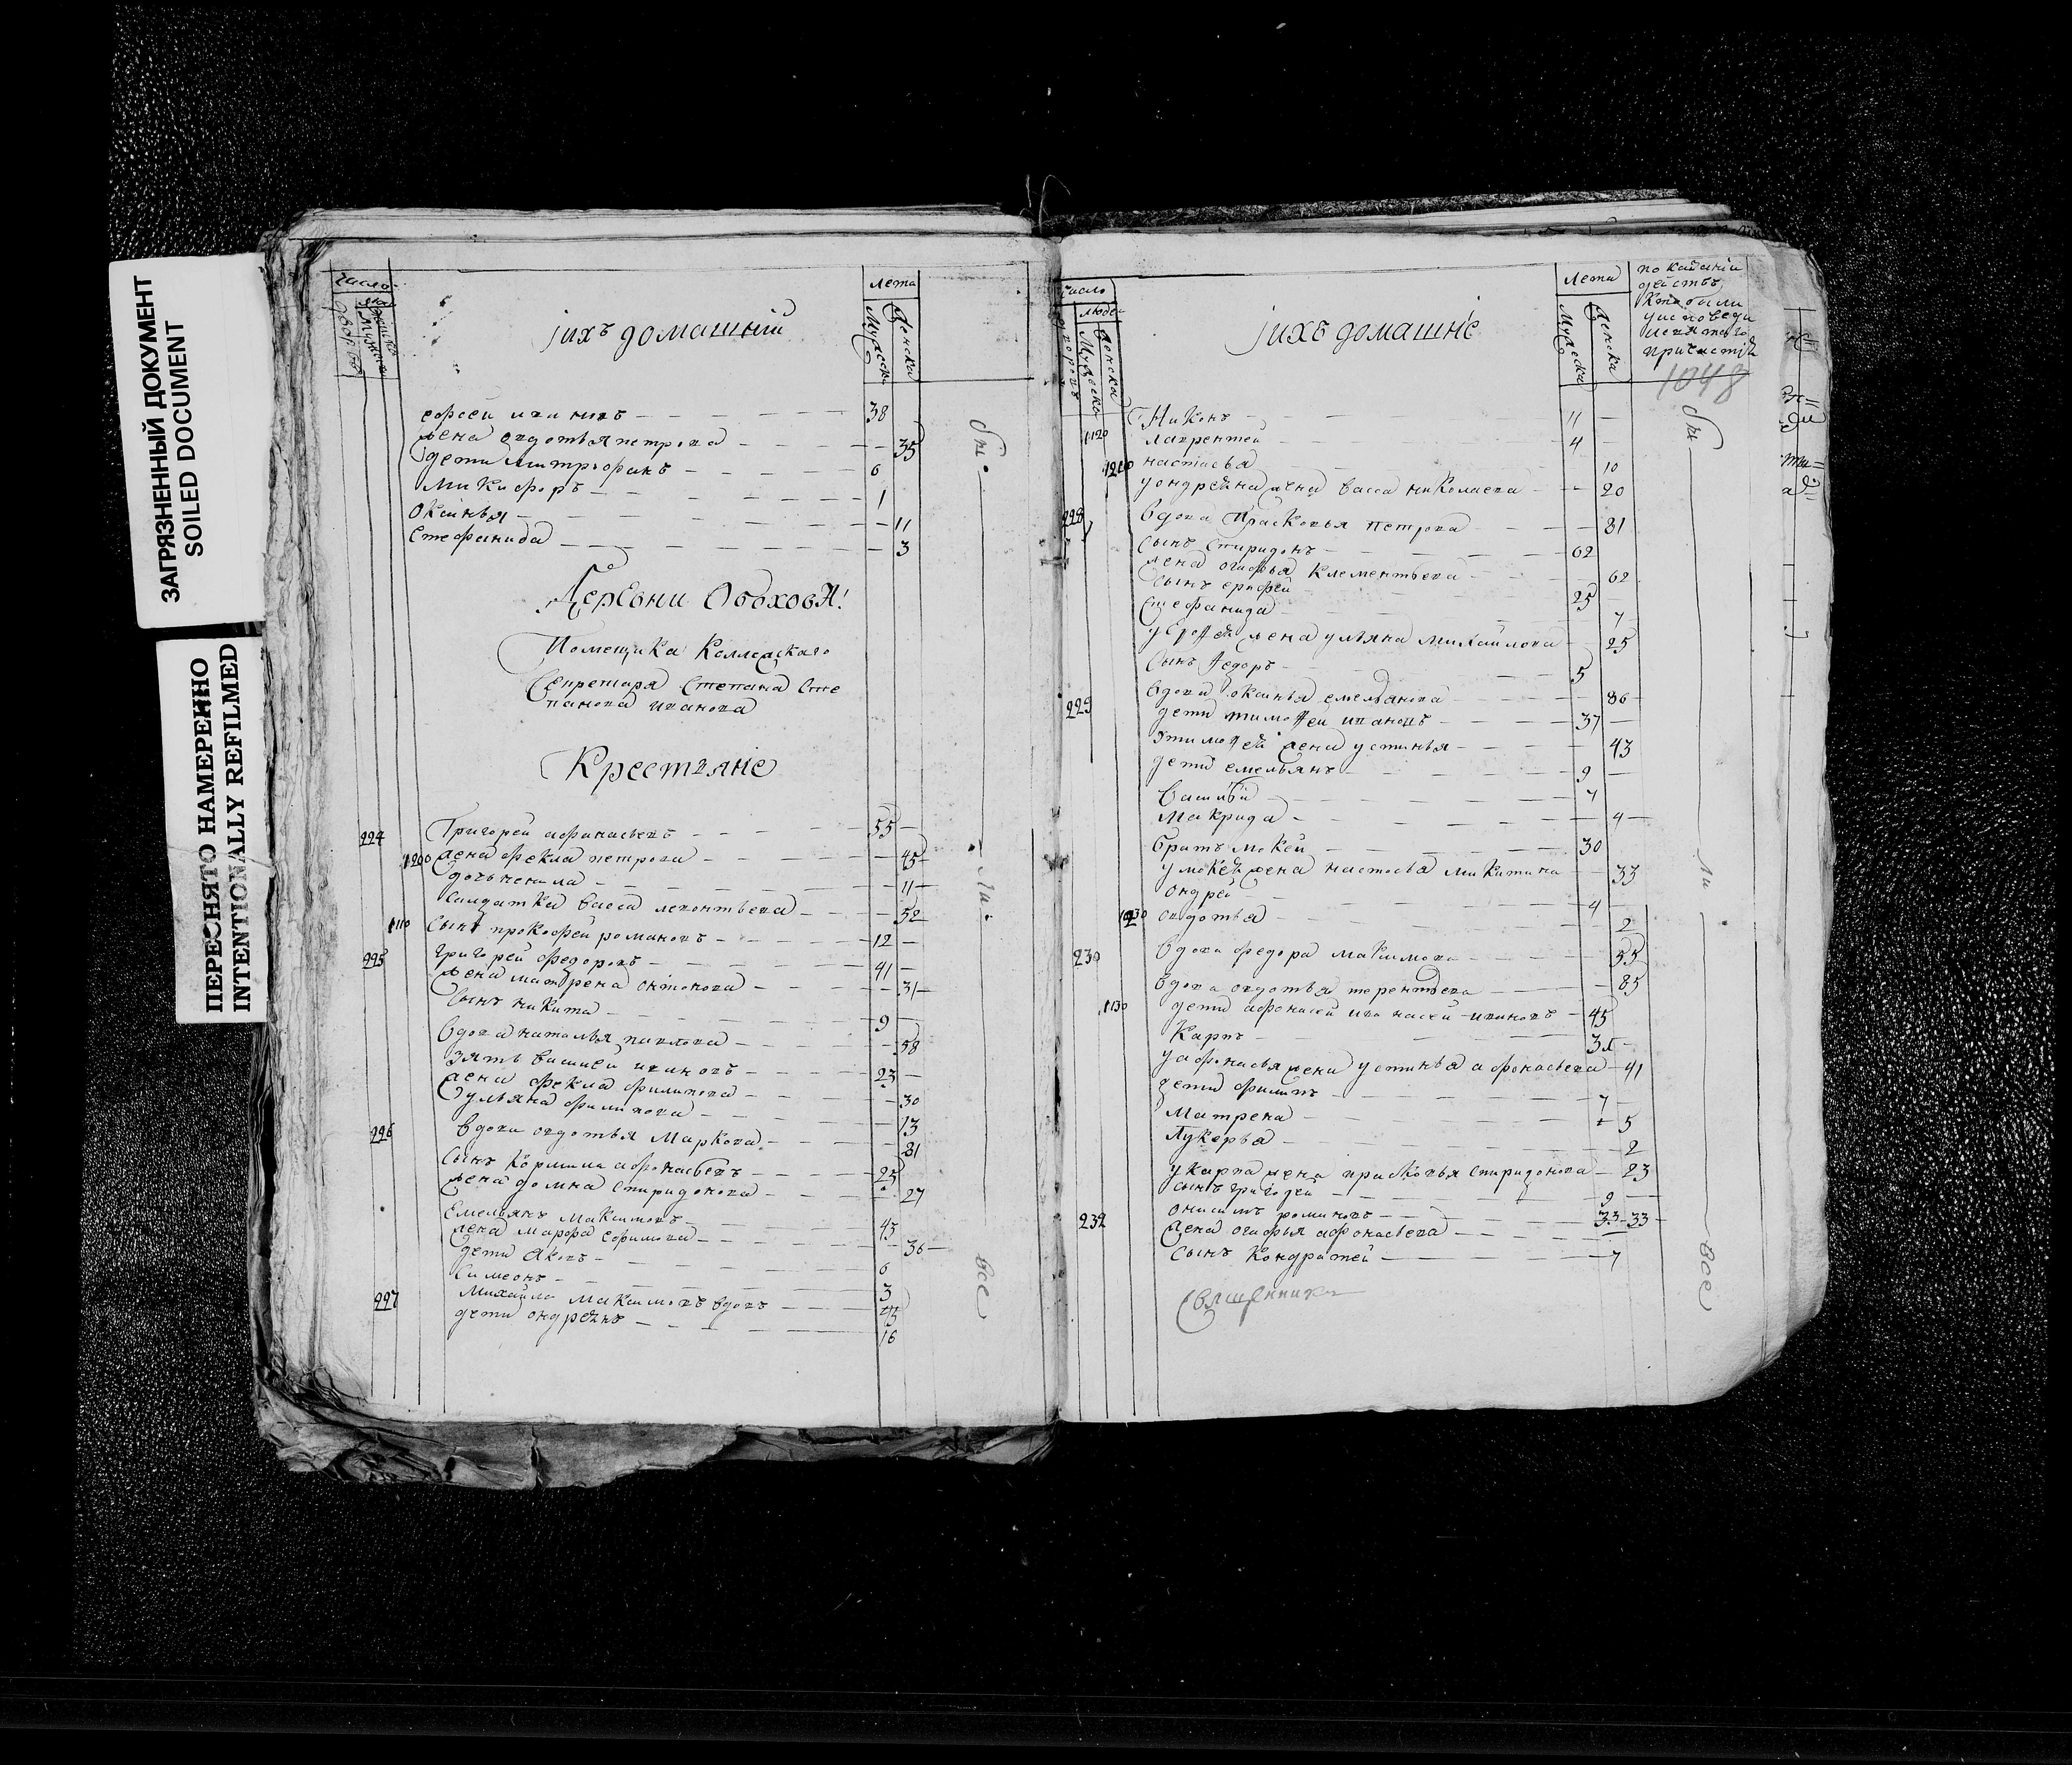 ЗАГРЯЗНЕННЫЙ ДОКУМЕНТ
SOILED DOCUMENT
ПЕРЕСНЯТО НАМЕРЕННО
INTENTIONALLY REFILMED
число
iихъ домашнiи
лета
Мужеска
Женска
38
жена овдотья петрова 35
дети митрофанъ 6
Микифоръ 1
Оксинья 11
Стефанида 3
Деревни
Помещика
Секретаря Степана Сте
панова иванова
Крестьянiе
224 Григорей афанасьевъ 55
1200 жена фекла петрова 45
дочь ненила 11
Салдатка васса леонтьева 52
1110 сынъ прокофей романовъ 12
225 григорей федоровъ 41
жена матрена онтонова 31
сынъ никита 9
вдова наталья павлова 58
зять василей ивановъ 23
жена фекла филипова 30
ульяна филипова 13
226 вдова овдотья Маркова 81
сынъ афонасьевъ 25
жена домна спиридонова 27
Емельянъ Максимовъ 45
жена марфа ефимова 36
дети яковъ 6
Симеонъ 3
227 Михаила Максимовъ вдовъ
дети 16
бы
ли
все
число
людей
Мужеска
Женска
iихъ домашнiе
Лета
Мужеска
Женска
покаянiи
действъ
Кто были
у исповеди
и святаго
1048
Никонъ 11
1120 лаврентей 4
1210 настасья 10
у ондреяна жена васса николаева 20
228 вдова Прасковья петрова 81
сынъ спиридонъ 62
жена огафья клементьева 62
сынъ ерофей 25
Стефанида 7
жена ульяна михайлова 25
сынъ федоръ 5
229 вдова оксинья емельянова 86
дети тимофей ивановъ 37
у тимофея жена устинья 43
дети емельянъ 9
василей 7
Макрида 4
братъ мокей 30
у мокея жена настасья микитина 33
ондрей 4
овдотья 2
230 вдова федора максимова 55
вдова овдотья терентьева 85
1130 дети афонасей ивановъ 45
Карпъ
у афонасья жена устинья афонасьева 41
дети филипъ 7
Матрена 5
Лукерья 2
у карпа жена прасковья спиридонова 23
сынъ григорей 9
232 онисимъ романовъ 33
жена огафья афонасьева 33
сынъ Кондратей 7
Священникъ
бы
ли
все